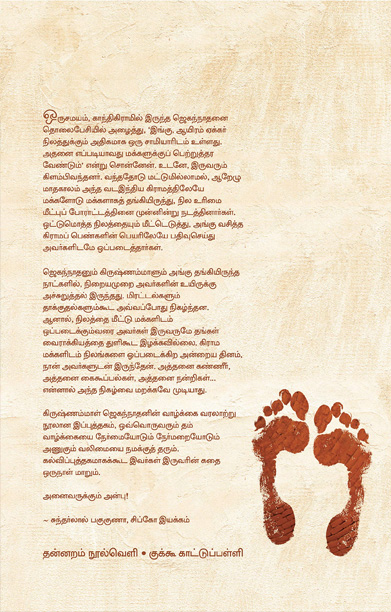 ஒருசமயம், காந்திகிராமில் இருந்த ஜெகந்நாதனை
தொலைபேசியில் அழைத்து, 'இங்கு, ஆயிரம் ஏக்கர்
நிலத்துக்கும் அதிகமாக ஒரு சாமியாரிடம் உள்ளது.
அதனை எப்படியாவது மக்களுக்குப் பெற்றுத்தர
வேண்டும்' என்று சொன்னேன். உடனே, இருவரும்
கிளம்பிவந்தனர். வந்ததோடு மட்டுமில்லாமல், ஆறேழு
மாதகாலம் அந்த வடஇந்திய கிராமத்திலேயே
மக்களோடு மக்களாகத் தங்கியிருந்து, நில உரிமை
மீட்புப் போராட்டத்தினை முன்னின்று நடத்தினார்கள்.
ஒட்டுமொத்த நிலத்தையும் மீட்டெடுத்து, அங்கு வசித்த
கிராமப் பெண்களின் பெயரிலேயே பதிவுசெய்து
அவர்களிடமே ஒப்படைத்தார்கள்.
ஜெகந்நாதனும் கிருஷ்ணம்மாளும் அங்கு தங்கியிருந்த
நாட்களில், நிறையமுறை அவர்களின் உயிருக்கு
அச்சுறுத்தல் இருந்தது. மிரட்டல்களும்
தாக்குதல்களும்கூட அவ்வப்போது நிகழ்ந்தன.
ஆனால், நிலத்தை மீட்டு மக்களிடம்
ஒப்படைக்கும்வரை அவர்கள் இருவருமே தங்கள்
வைராக்கியத்தை துளிகூட இழக்கவில்லை. கிராம
மக்களிடம் நிலங்களை ஒப்படைக்கிற அன்றைய தினம்,
நான் அவர்களுடன் இருந்தேன். அத்தனை கண்ணீர்,
அத்தனை கைகூப்பல்கள், அத்தனை நன்றிகள்...
என்னால் அந்த நிகழ்வை மறக்கவே முடியாது.
கிருஷ்ணம்மாள் ஜெகந்நாதனின் வாழ்க்கை வரலாற்று
நூலான இப்புத்தகம், ஒவ்வொருவரும் தம்
வாழ்க்கையை நேர்மையோடும் நேர்மறையோடும்
அணுகும் வலிமையை நமக்குத் தரும்.
கல்விப்புத்தகமாகக்கூட இவர்கள் இருவரின் கதை
ஒருநாள் மாறும்.
அனைவருக்கும் அன்பு!
~ சுந்தர்லால் பகுகுணா, சிப்கோ இயக்கம்
தன்னறம் நூல்வெளி • குக்கூ காட்டுப்பள்ளி